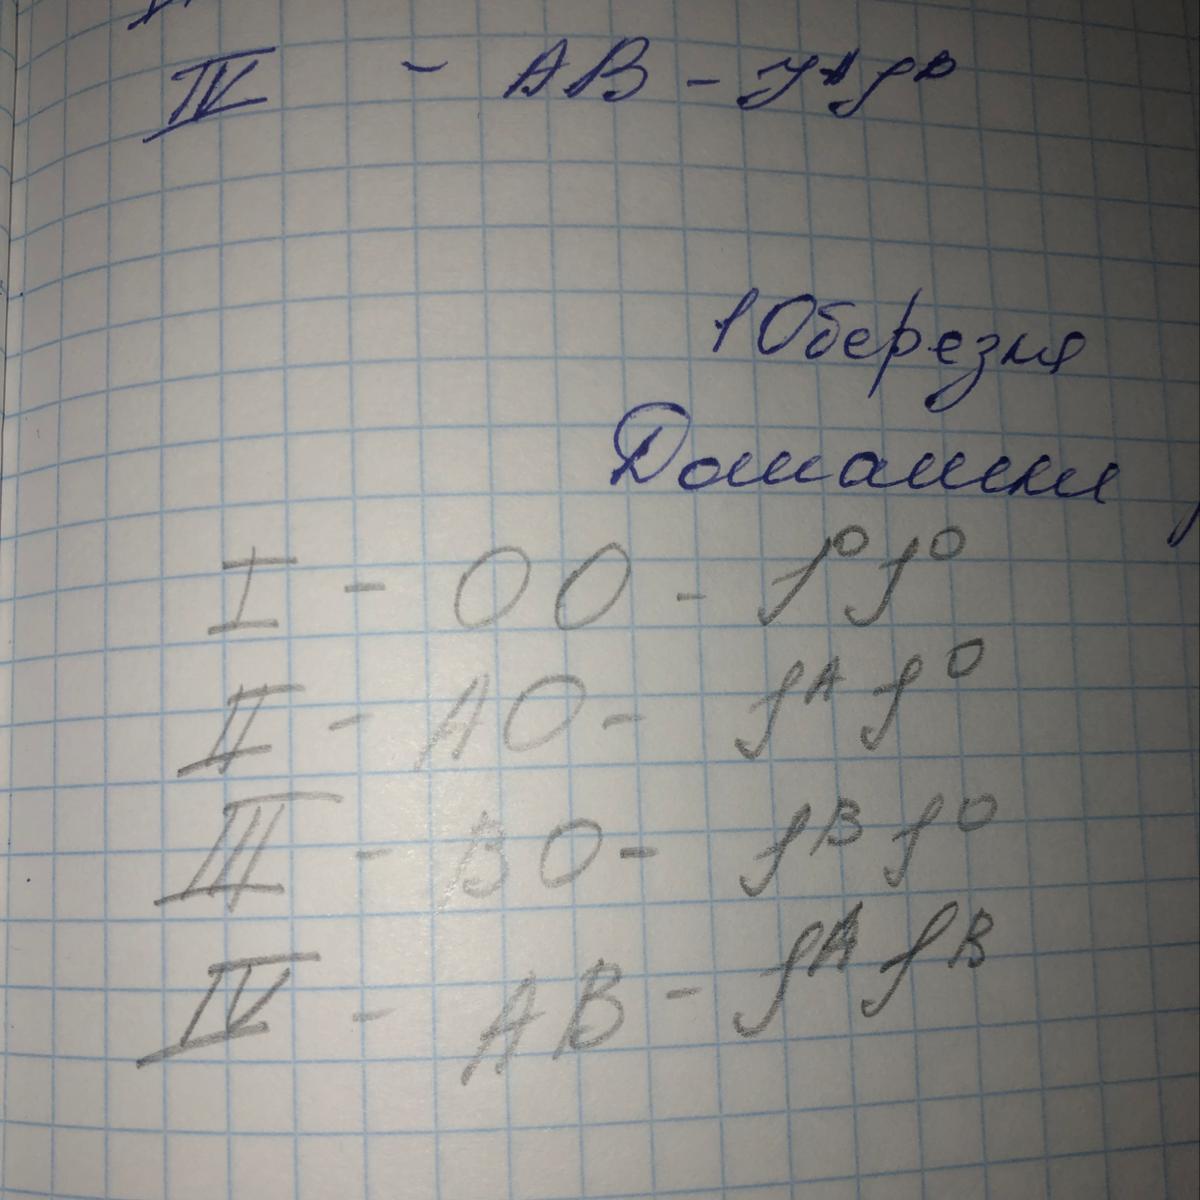 IV - AB - J^A J^B
10 березня
Домашня
I - OO - J^O J^O
II - AO - J^A J^O
III - BO - J^B J^O
IV - AB - J^A J^B